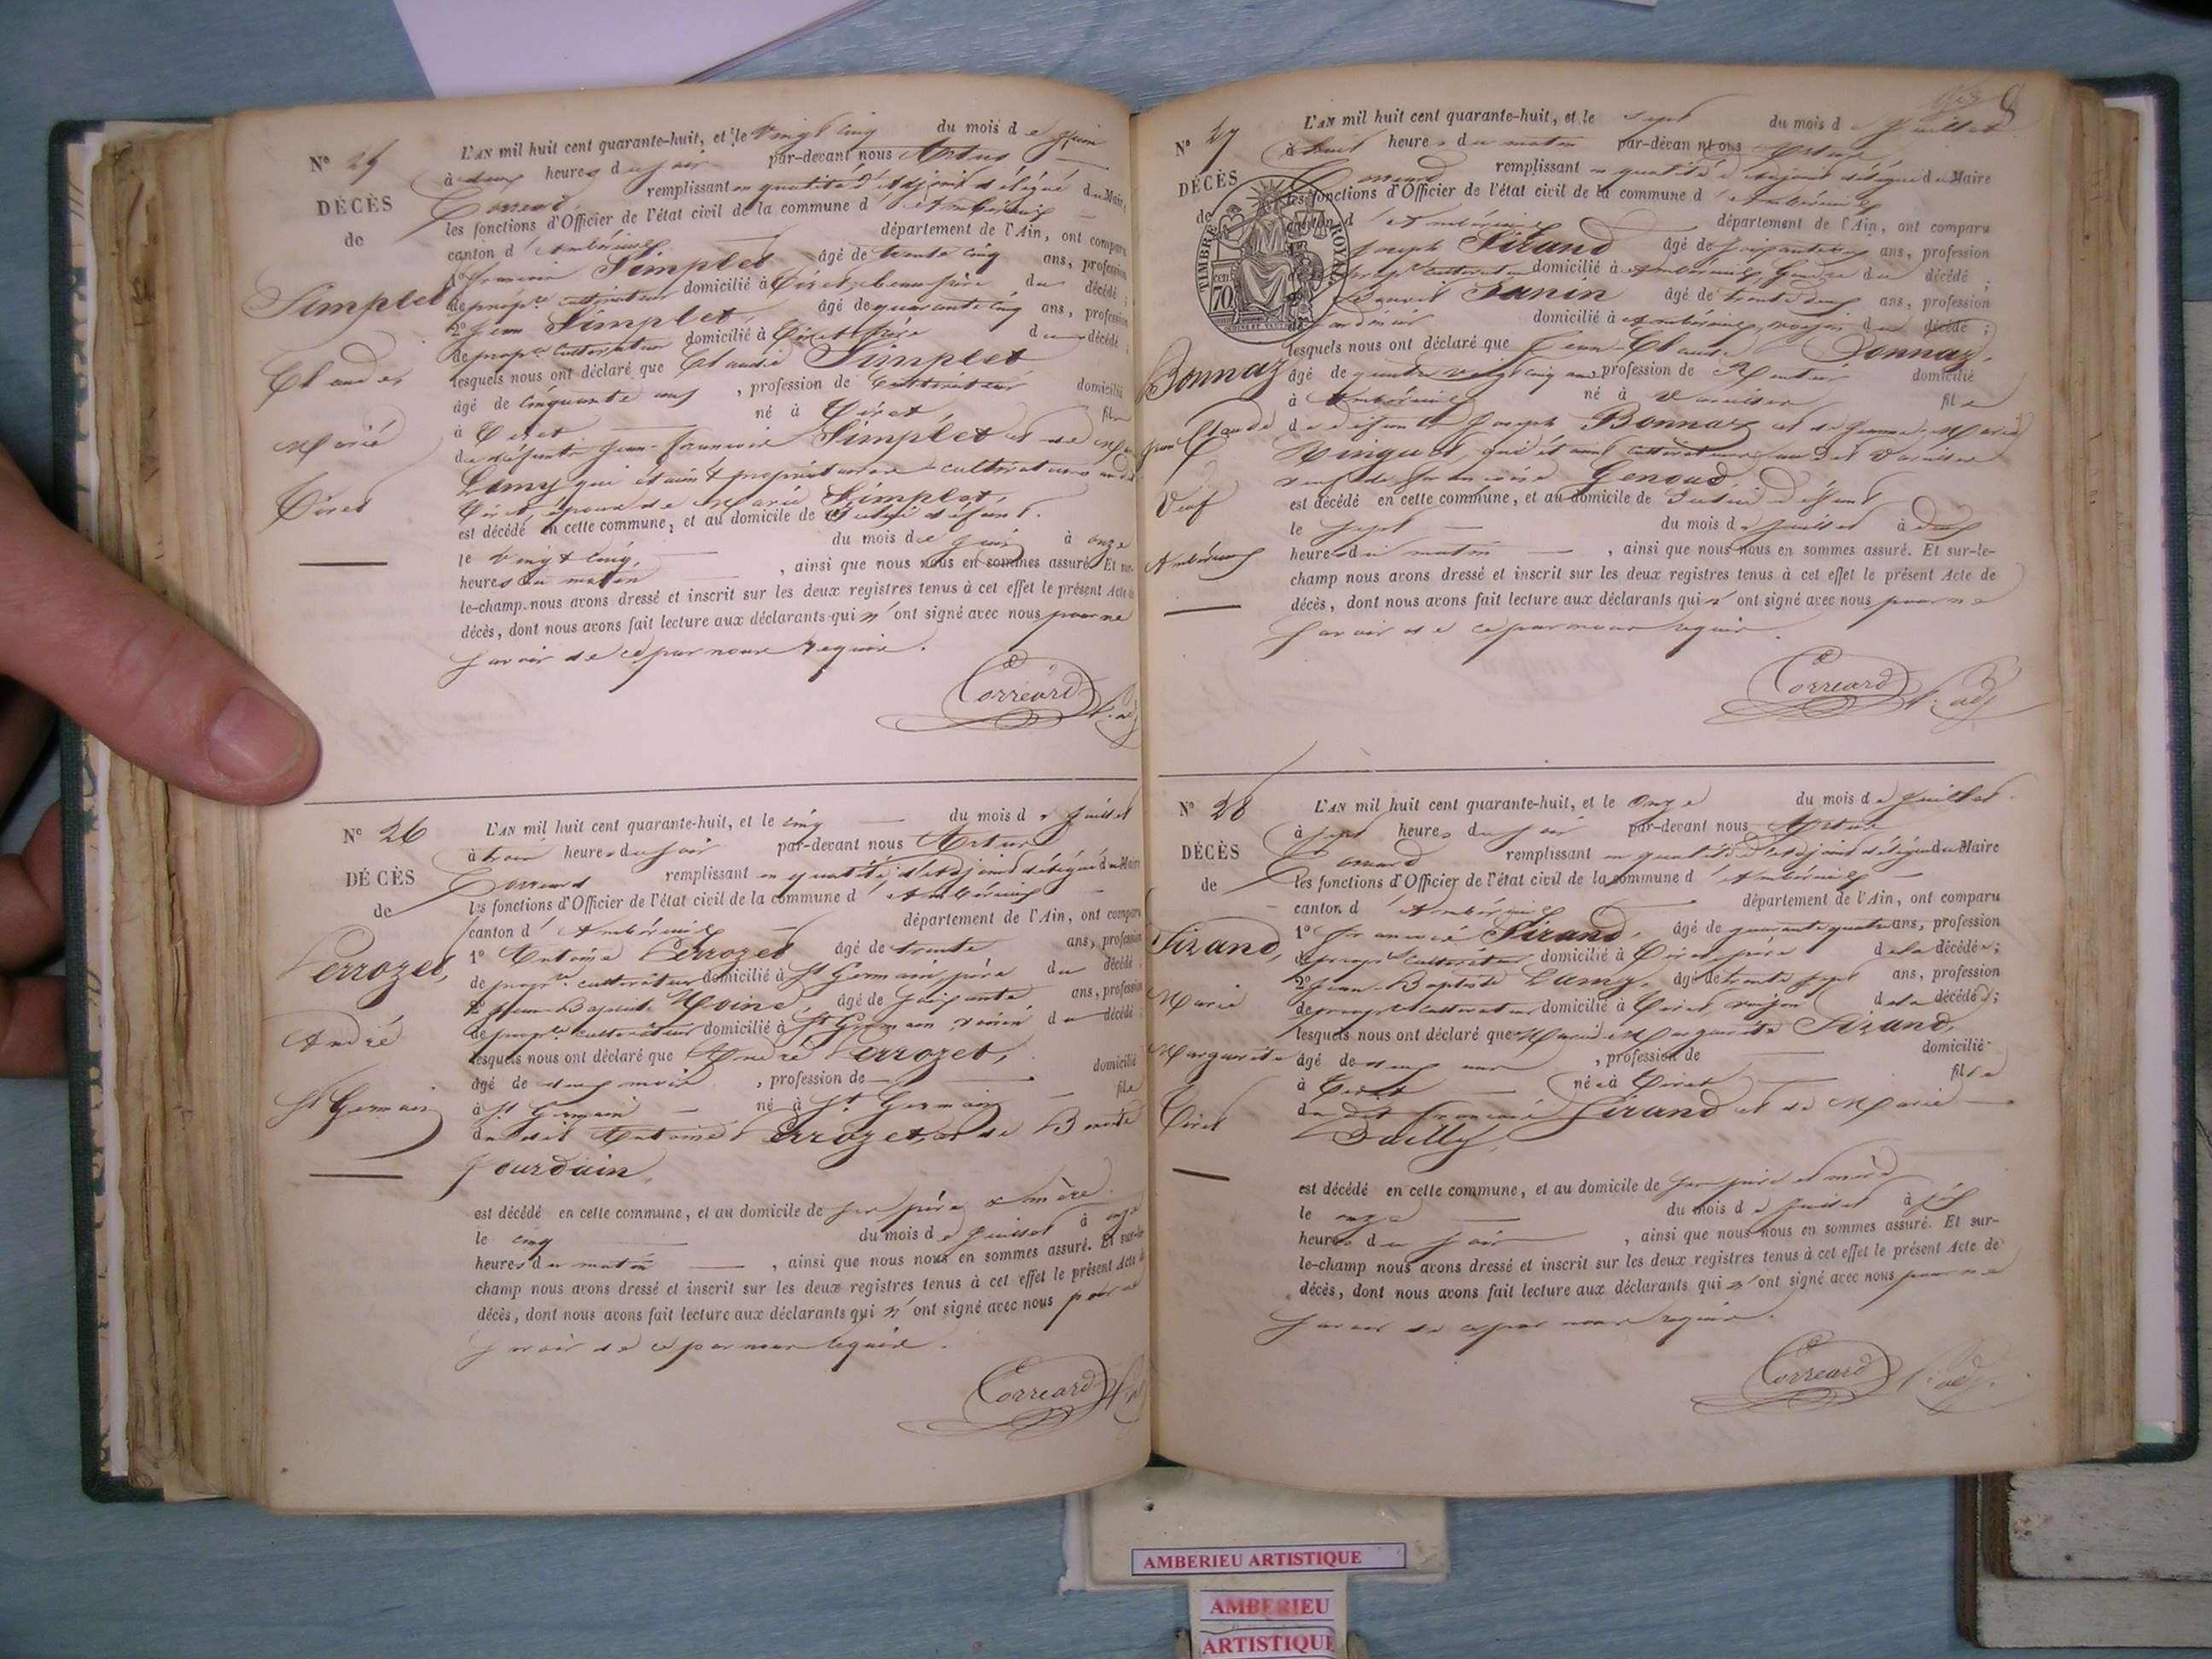 N° 25
DÉCÈS
de
Simplet
Claude
Marié
Tiret
L'AN mil huit cent quarante-huit, et le vingt cinq du mois de Juin
à deux heures du soir par-devant nous Artus
Corréard remplissant en qualité d'Adjoint délégué du Maire
les fonctions d'Officier de l'état civil de la commune d'Ambérieux
canton d'Ambérieux département de l'Ain, ont comparu
1° françois Simplet âgé de trente cinq ans, profession
de prop.re cultivateur domicilié à Tiret, beau frère du décédé;
2° Jean Simplet, âgé de quarante cinq ans, profession
de prop.re cultivateur domicilié à Tiret frère du décédé;
lesquels nous ont déclaré que Claude Simplet
âgé de cinquante ans, profession de cultivateur domicilié
à Tiret né à Tiret fils
de défunts Jean-françois Simplet et de
Lamy qui étaient propriétaires-cultivateurs au dit
Tiret, époux de Marie Simplet,
est décédé en cette commune, et au domicile de lui défunt.
le vingt cinq, du mois de Juin à onze
heures du matin, ainsi que nous nous en sommes assuré. Et sur-
le-champ nous avons dressé et inscrit sur les deux registres tenus à cet effet le présent Acte de
décès, dont nous avons fait lecture aux déclarants qui n'ont signé avec nous pour ne
savoir de ce par nous requis.
Corréard
N° 26
DÉCÈS
de
Perrozet,
André
St Germain
L'AN mil huit cent quarante-huit, et le cinq du mois de Juillet
à trois heures du soir par-devant nous Artus
Corréard remplissant en qualité d'Adjoint délégué du Maire
les fonctions d'Officier de l'état civil de la commune d'Ambérieux
canton d'Ambérieux département de l'Ain, ont comparu
1° Antoine Perrozet âgé de trente ans, profession
de prop.re cultivateur domicilié à St Germain, père du décédé
2° Jean-Baptiste Moine âgé de soixante ans, profession
de prop.re cultivateur domicilié à St Germain, voisin du décédé;
lesquels nous ont déclaré que André Perrozet,
âgé de deux mois, profession de domicilié
à St Germain né à St Germain fils
du dit Antoine Perrozet, et de Benoite
Jourdain,
est décédé en cette commune, et au domicile de ses père & mère.
le cinq du mois de Juillet à onze
heures du matin, ainsi que nous nous en sommes assuré. Et sur-le-
champ nous avons dressé et inscrit sur les deux registres tenus à cet effet le présent Acte de
décès, dont nous avons fait lecture aux déclarants qui n'ont signé avec nous pour ne
savoir de ce par nous requis.
Corréard
8
N° 27
DÉCÈS
de
TIMBRE ROYAL
70 cent
Bonnaz
Jean Claude
Veuf
Ambérieux
L'AN mil huit cent quarante-huit, et le sept du mois de Juillet
à huit heures du matin par-devant nous Artus
Corréard remplissant en qualité d'Adjoint délégué du Maire
les fonctions d'Officier de l'état civil de la commune d'Ambérieux
canton d'Ambérieux département de l'Ain, ont comparu
Joseph Sirand âgé de ans, profession
de prop.re cultivateur domicilié à Ambérieux, gendre du décédé;
Janin âgé de trente deux ans, profession
domicilié à Ambérieux, voisin du décédé;
lesquels nous ont déclaré que Jean-Claude Bonnaz,
âgé de quatre vingt cinq ans profession de Rentier domicilié
à Ambérieux né à Varuiseu fils
de défunts Joseph Bonnaz et de Jeanne-Marie
Ringuet, qui étaient cultivateurs au dit
veuf de françoise Genoud
est décédé en cette commune, et au domicile de lui défunt
le sept du mois de Juillet à deux
heures du matin, ainsi que nous nous en sommes assuré. Et sur-le-
champ nous avons dressé et inscrit sur les deux registres tenus à cet effet le présent Acte de
décès, dont nous avons fait lecture aux déclarants qui n'ont signé avec nous pour ne
savoir de ce par nous requis.
Corréard
N° 28
DÉCÈS
de
Sirand,
Marie
Marguerite
Tiret
L'AN mil huit cent quarante-huit, et le onze du mois de Juillet.
à sept heures du soir par-devant nous Artus
Corréard remplissant en qualité d'Adjoint délégué du Maire
les fonctions d'Officier de l'état civil de la commune d'Ambérieux
canton d'Ambérieux département de l'Ain, ont comparu
1° françois Sirand, âgé de quarante quatre ans, profession
de prop.re cultivateur domicilié à Tiret, père de la décédée;
2° Jean-Baptiste Lamy, âgé de trente sept ans, profession
de prop.re cultivateur domicilié à Tiret, voisin de la décédée;
lesquels nous ont déclaré que Marie-Marguerite Sirand,
âgé de deux ans, profession de domicilié
à Tiret née à Tiret fille
du dit françois Sirand et de Marie
Bailly,
est décédé en cette commune, et au domicile de ses père et mère
le onze du mois de Juillet à six
heures du soir, ainsi que nous nous en sommes assuré. Et sur-
le-champ nous avons dressé et inscrit sur les deux registres tenus à cet effet le présent Acte de
décès, dont nous avons fait lecture aux déclarants qui n'ont signé avec nous pour ne
savoir de ce par nous requis.
Corréard
AMBERIEU ARTISTIQUE
AMBERIEU
ARTISTIQUE